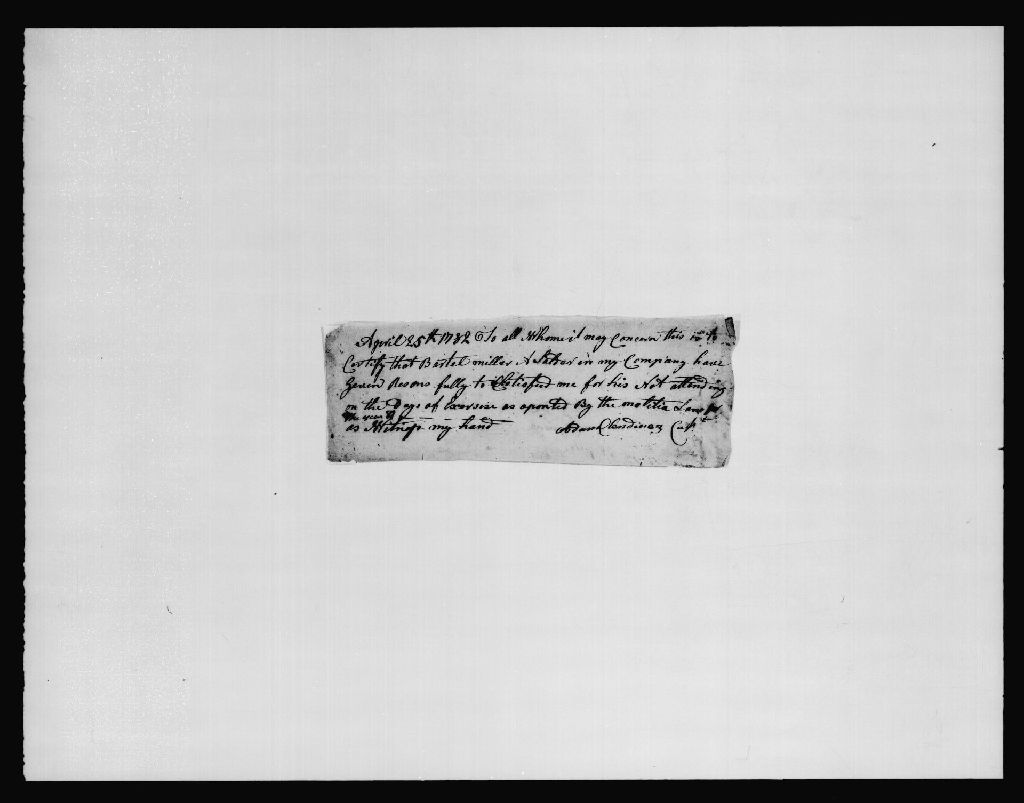 April 25th 1782 To all Whome it may Concern this is to
Certify that Bastel miller A in my Company have
Geven Resons fully to Satisfied me for his Not atending
on the Days of Exersise as aponted By the molitia Law for
the year 81
as Witness my hand Adam Clendinan Capt